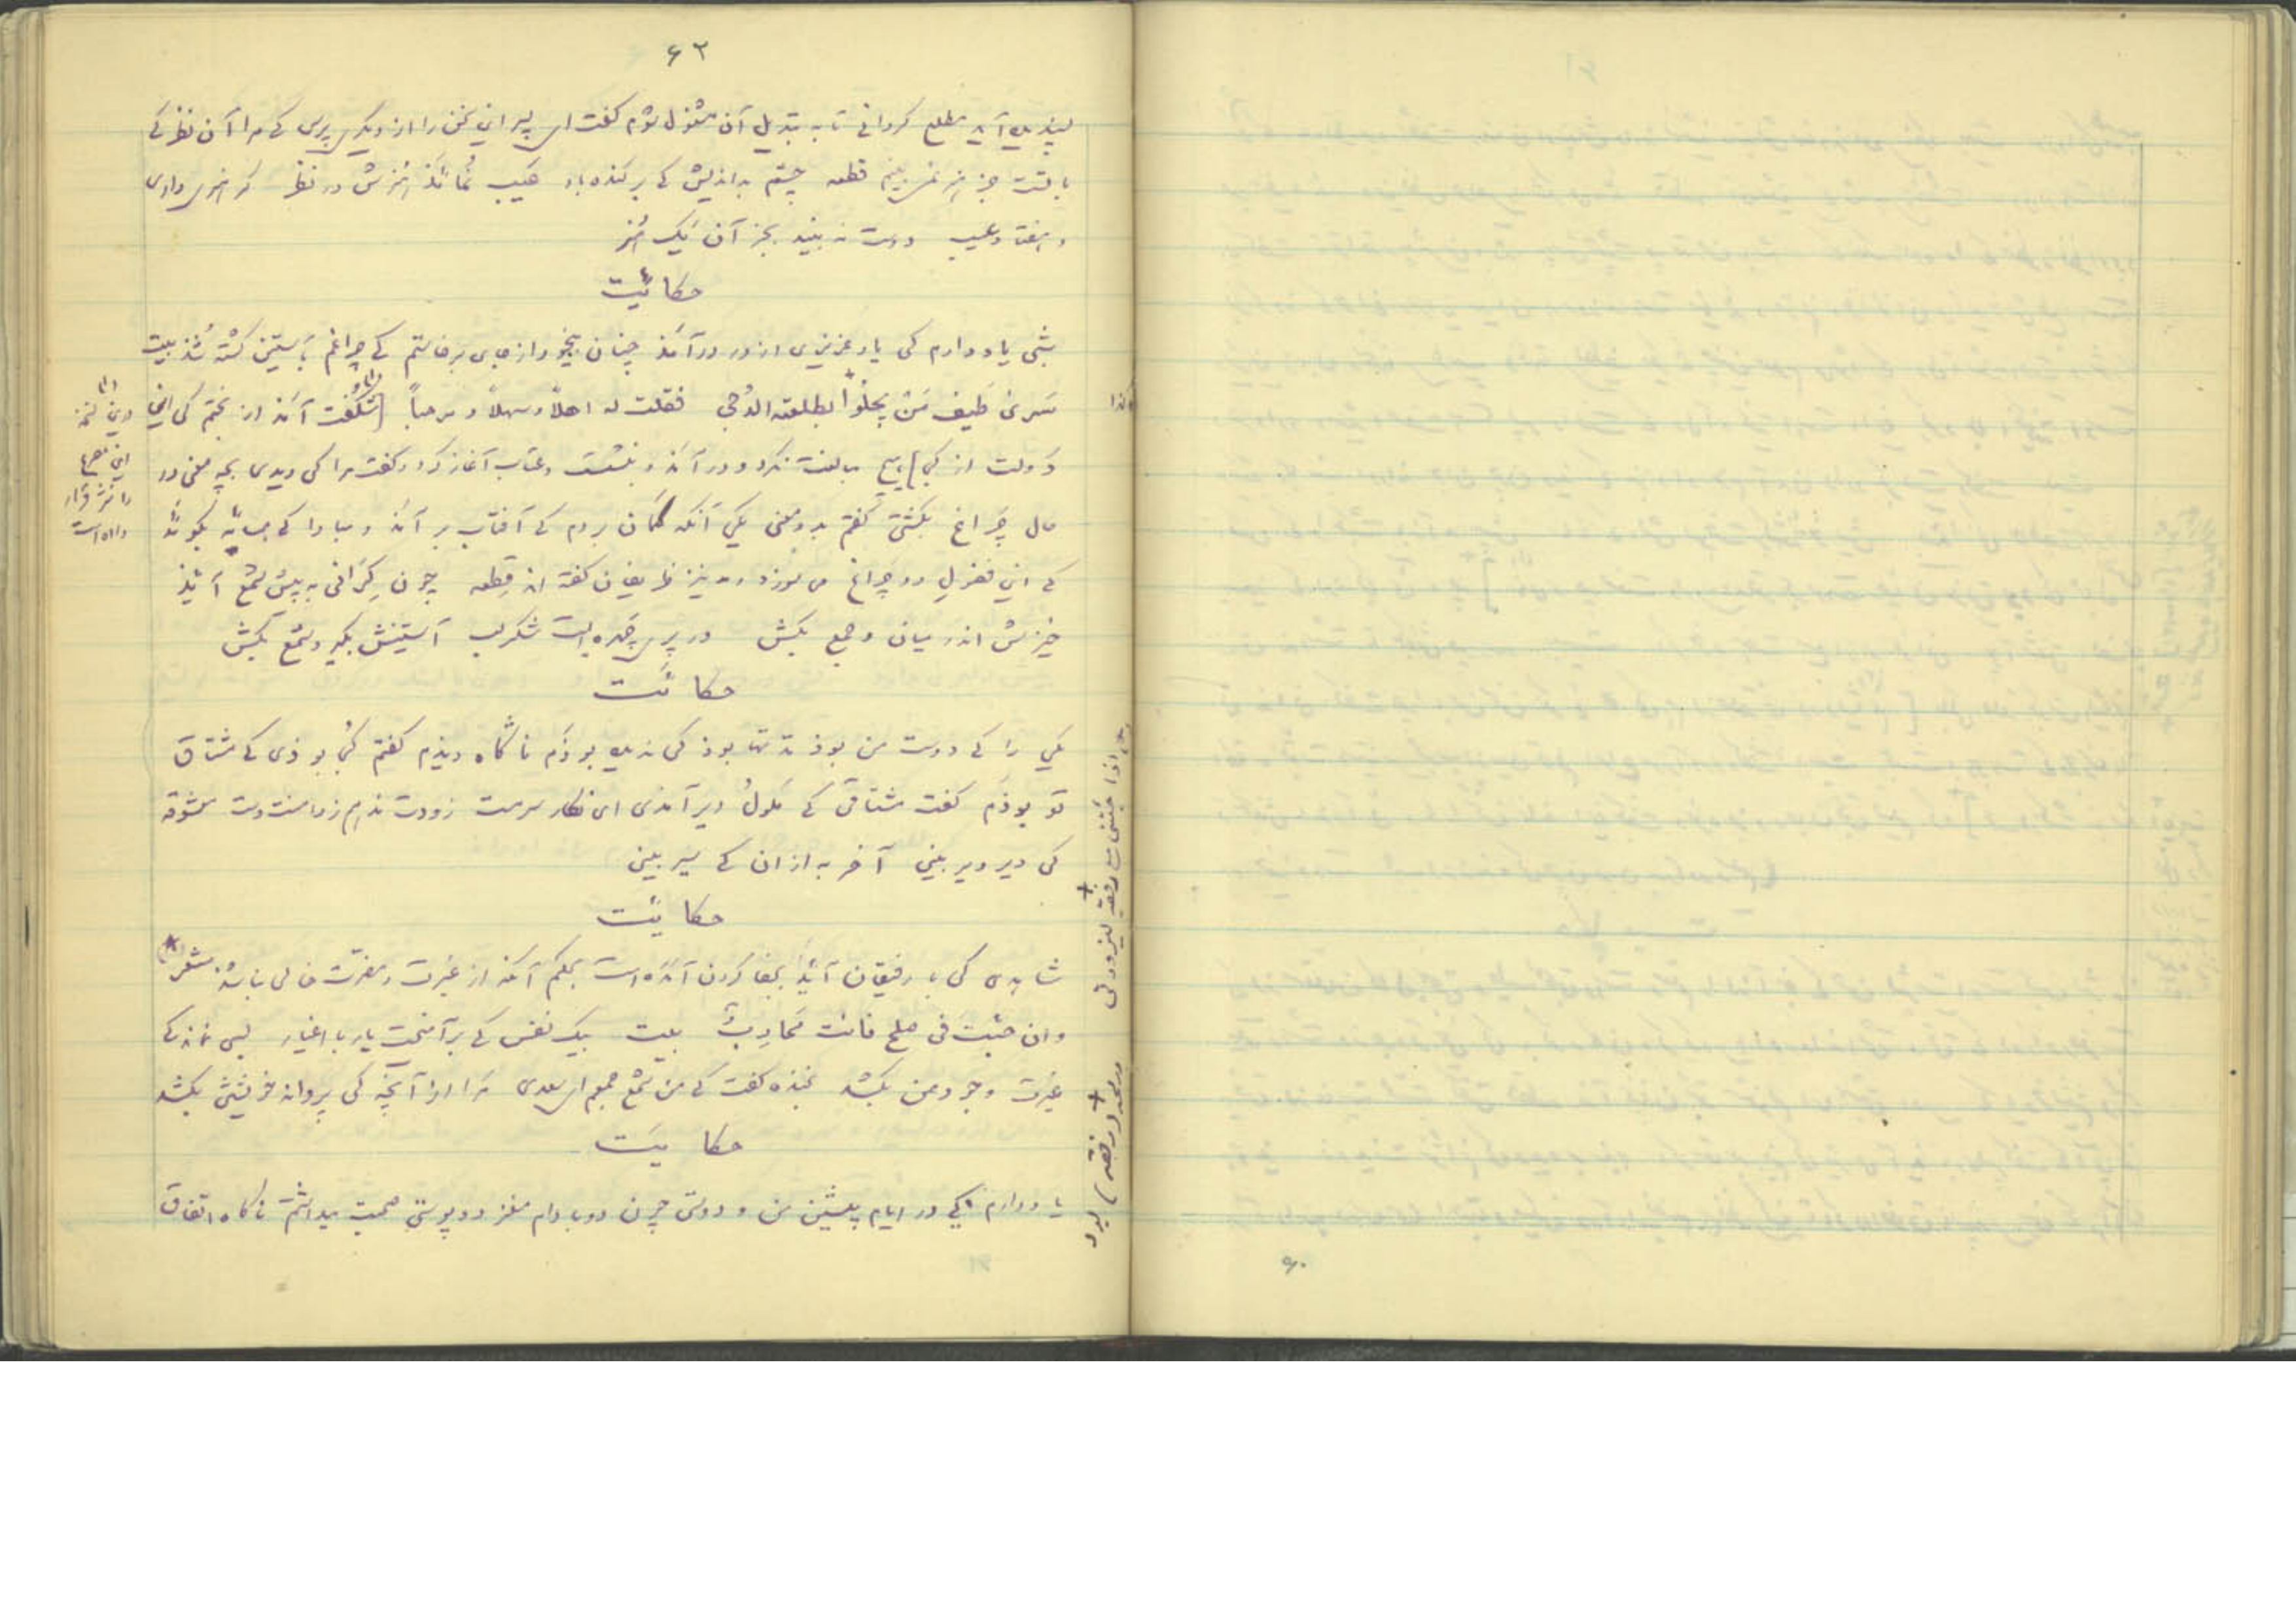 ۶۳
پسندیده آید مطلع گردانی تا به تبدیل آن مشغول شوم گفت ای پسر این سخن را از دیگری پرس کی مرا آن نظر کی
با تست جز هنر نمی‌بینم قطعه چشم بداندیش کی برکنده باد عیب نماند هنرش در نظر گر هنری داری
و هفتاد عیب دوست نه بیند بجز آن یک هنر
حکائیت
شبی یاد دارم کی یار عزیزی از در درآمذ چنان بیخود از جای برخاستم کی چراغم بآستین کشته شذ بیت
سَریٰ طَیفُ مَن یجلُوا بطلعته الدُجی فقلت له اهلاً و سهلاً و مرحباً [شگفت آمذ از بختم کی این
دَولت از کی] پس بنشست و عتاب آغاز کرد و گفت مرا کی دیدی بچه معنی در
حال چَراغ بکشتی گفتم بدو معنی یکی آنکه گمان بردم کی آفتاب برآمذ و مبادا کی همسایه بگویذ
کی این فضول دو چراغ می سوزد و نیز ظریفان گفته اند قِطعه چون گِرانی به پیش شمع آیذ
خیزش اندر میان جمع بکش ور پری چَهره ایست شکر لب آستینش بگیر و شمع بکش
حکائت
یکی را کی دوست من بوذ مدتها بوذ کی ندیده بوذَم ناگاه دیذم گفتم کُجا بوذی کی مشتاق
تو بوذَم گفت مشتاق کی مَلولُ دیر آمذی ای نگار سرمست زودت ندهم ز دامنت دست معشوقه
کی دیر دیر بینی آخر به از ان کی سیر بینی
حکایئت
شاهدی کی با رفیقان آیذ بجفا کردن آمده است بحکم آنکه از غیرت و مضرّت خالی نباشذ شعر *
وان جئت فی صلح فانت مُحارِبُ بیت بیک نفس کی برآمیخت یار با اغیار بسی نماند کی
غیرت وجود من بکشد بخنده گفت کی من شمع جمعم ای سعدی مَرا از آنچه کی پروانه خویشتن بکشد
حکایَت
یاد دارم کی در ایام پیشین من و دوستی چون دو بادام مغز در پوستی صحبت میداشتم ناگاه اتفاق
کذا
(۱)
درین نسخه
این مصرع
را نثر قرار
داده است
اذا جئتنی فی رفقة لتزورنی